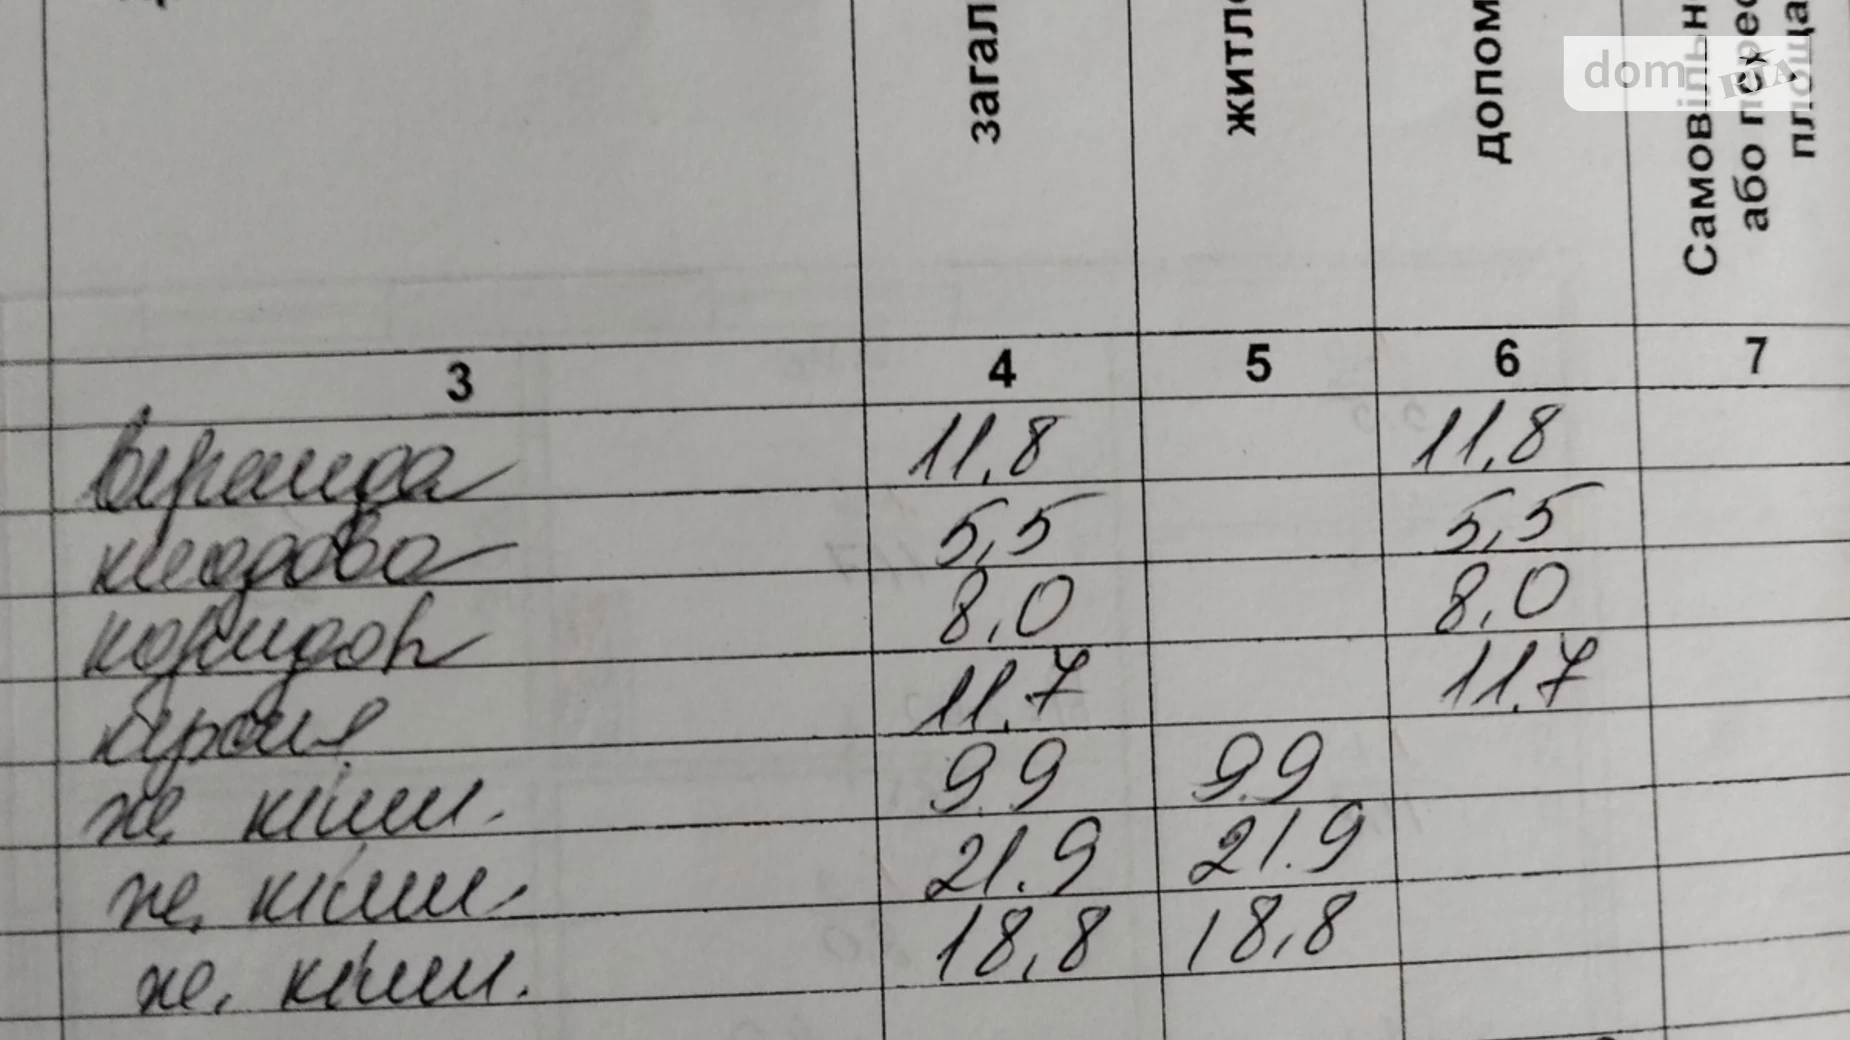 загал
житло
допом
Самовільн
або перес
площа
dom RIA
3 4 5 6 7
веранда 11,8 11,8
кладова 5,5 5,5
коридор 8,0 8,0
кухня 11.7 11.7
ж. кімн. 9.9 9.9
ж. кімн. 21.9 21.9
ж. кімн. 18,8 18,8